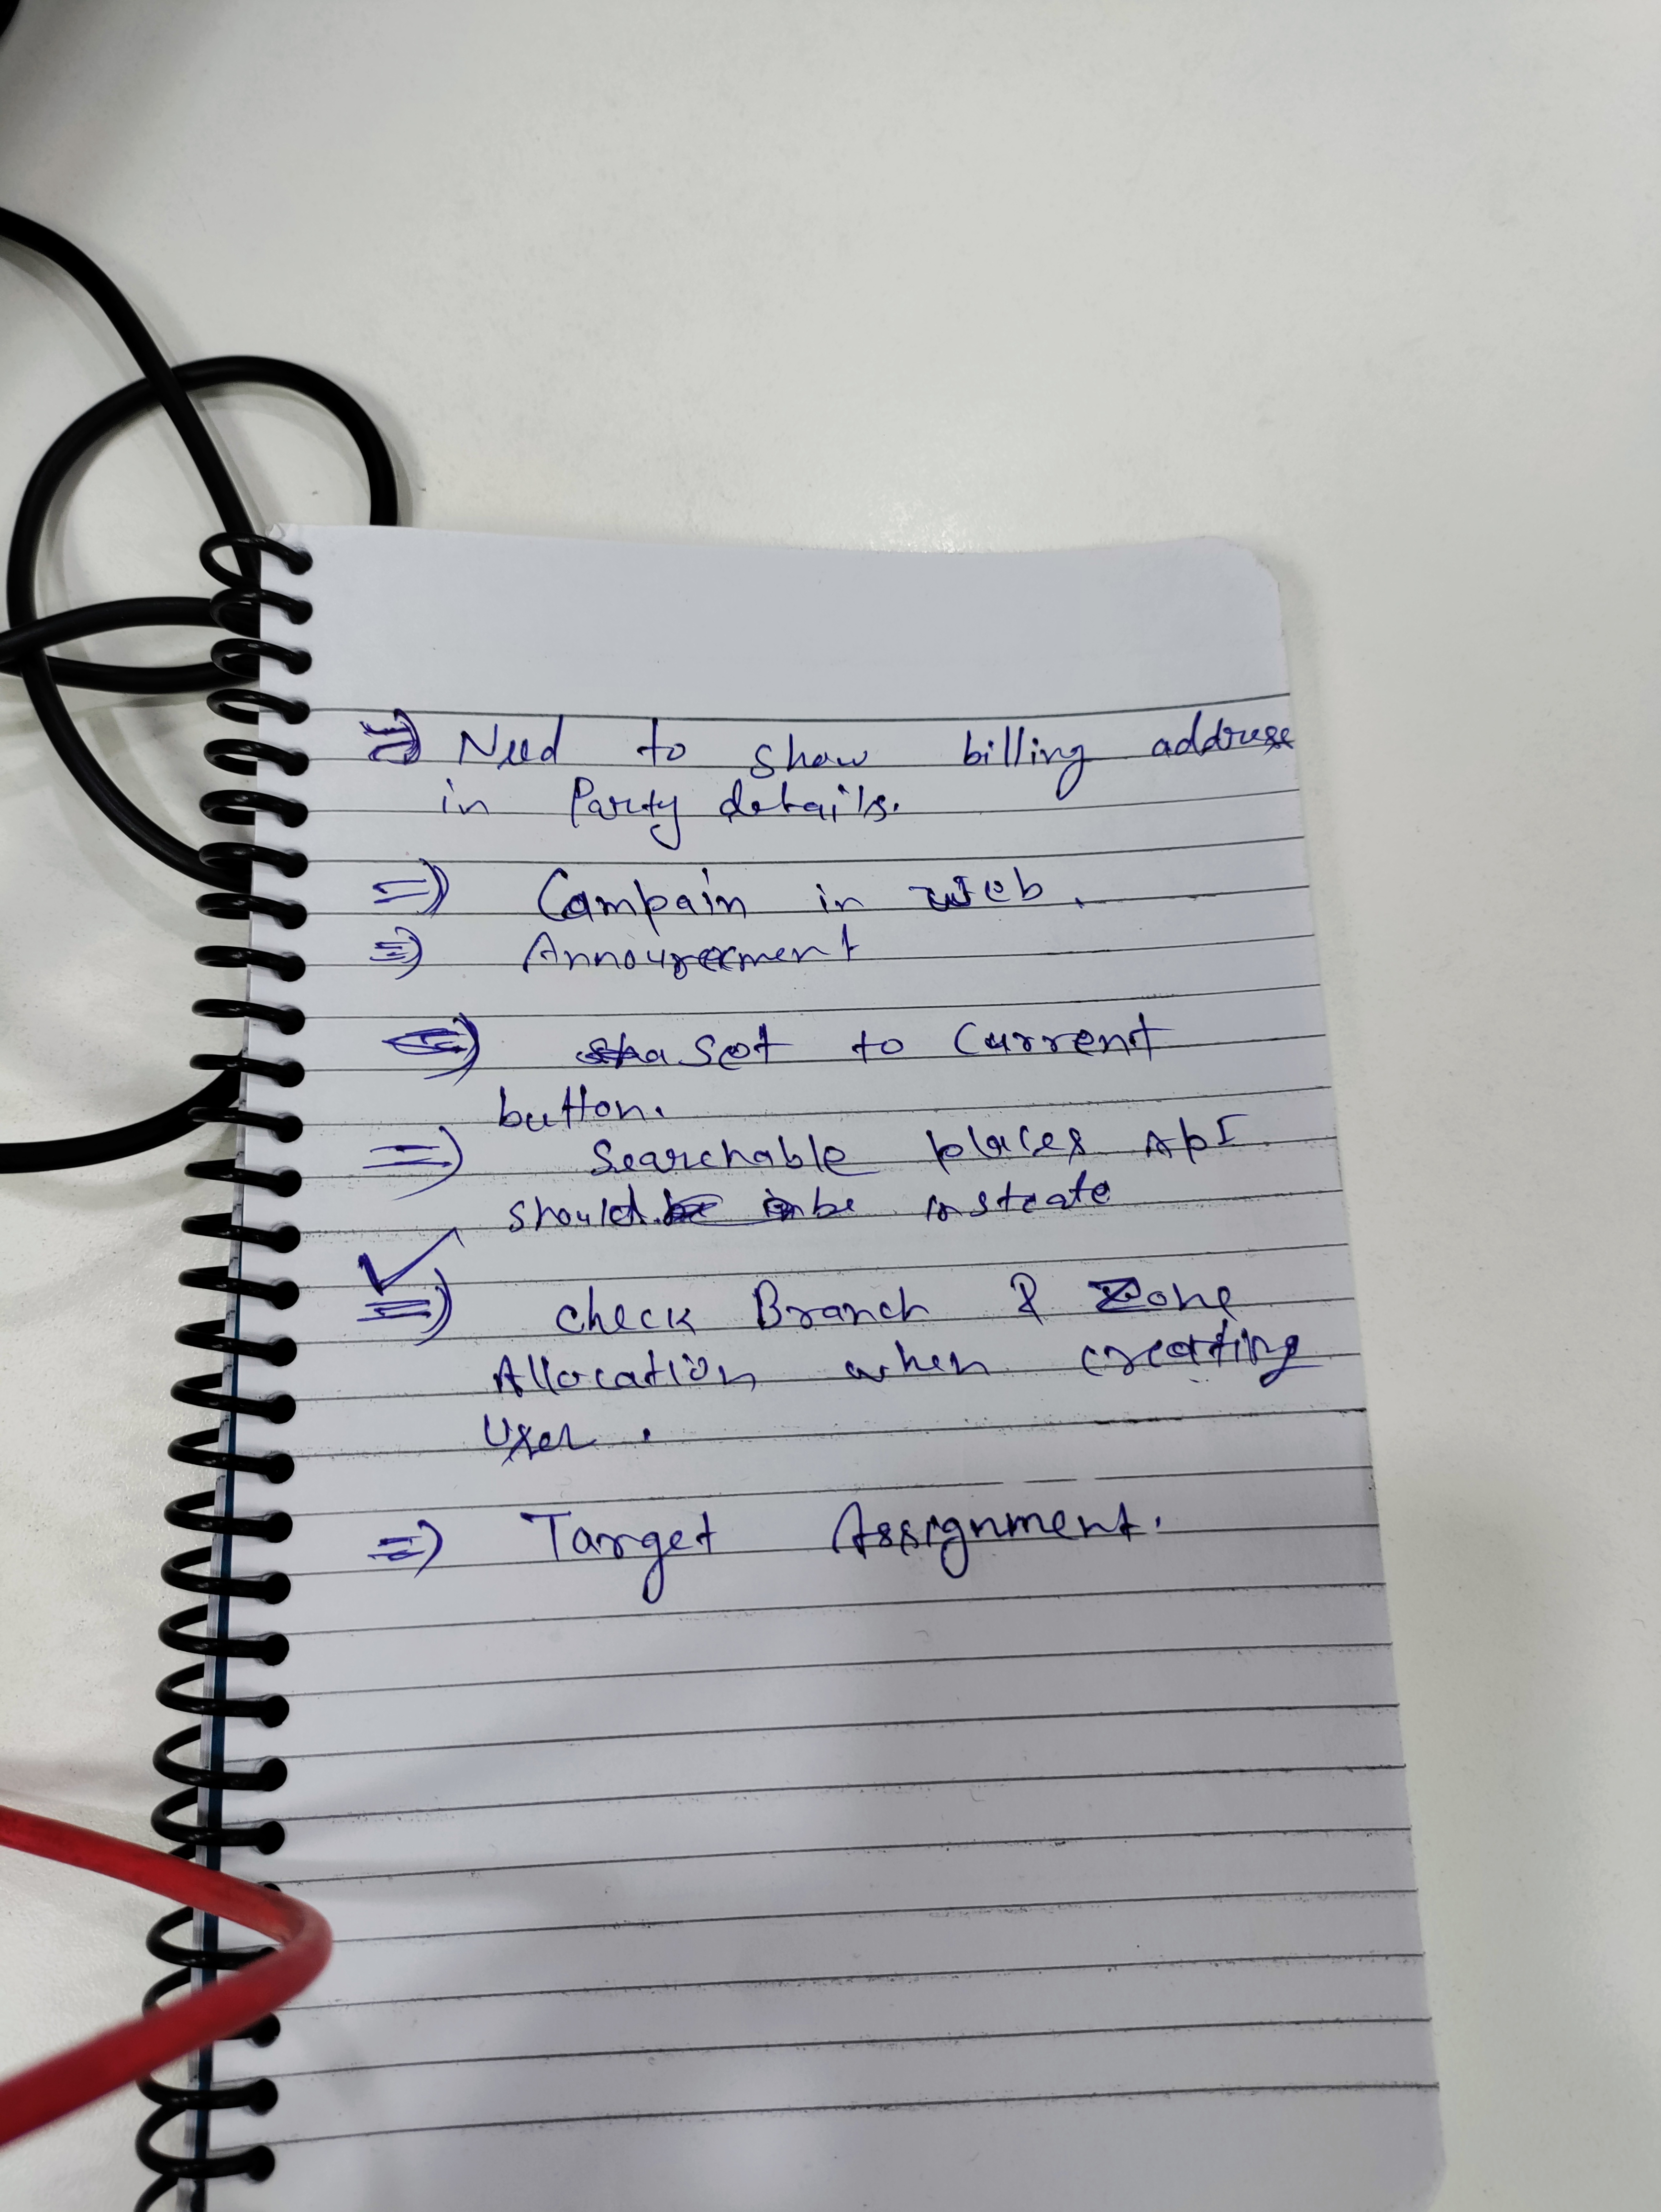 ⇒ Need to show billing address
in Party details.
⇒ Campain in web.
⇒ Announcement
⇒ Set to Current
button.
⇒ Searchable places API
should be
⇒ check Branch & Zone
Allocation when creating
User.
⇒ Target Assignment.